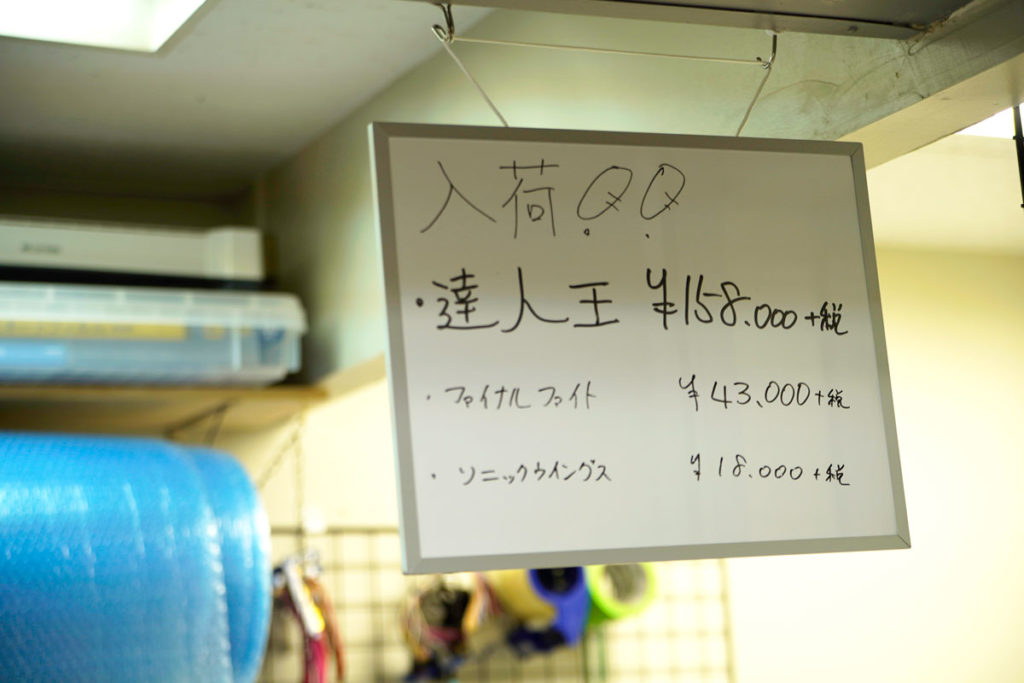 入荷!!
・達人王 ¥158.000+税
・ファイナルファイト ¥43,000+税
・ソニックウイングス ¥18.000+税